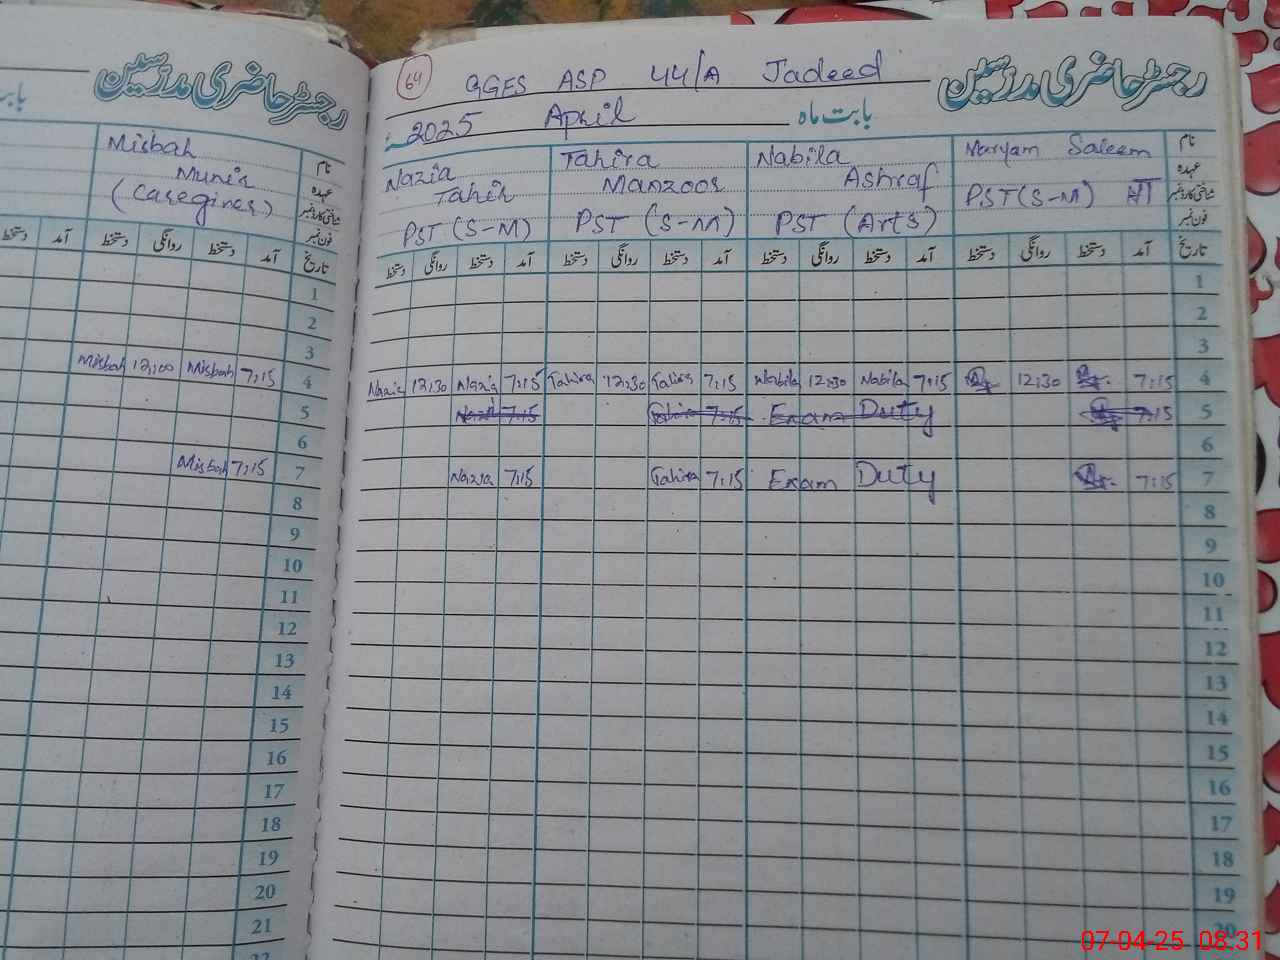 رجسٹر حاضری مدرسین
Misbah
Munir
(Caregiver)
نام
عہدہ
شناختی کارڈ نمبر
فون نمبر
دستخط آمد دستخط روانگی دستخط آمد تاریخ
1
2
3
Misbah 12:00 Misbah 7:15 4
5
6
Misbah 7:15 7
8
9
10
11
12
13
14
15
16
17
18
19
20
21
64 GGES ASP 44/A Jadeed رجسٹر حاضری مدرسین
2025 April بابت ماہ
Nazia Tahira Nabila Maryam Saleem نام
Tahir Manzoor Ashraf عہدہ
PST (S-M) PST (S-M) PST (Arts) PST (S-M) شناختی کارڈ نمبر
فون نمبر
دستخط روانگی دستخط آمد دستخط روانگی دستخط آمد دستخط روانگی دستخط آمد دستخط روانگی دستخط آمد تاریخ
1
2
3
Nazia 12:30 Nazia 7:15 Tahira 12:30 Tahira 7:15 Nabila 12:30 Nabila 7:15 12:30 7:15 4
Nazia 7:15 Tahira 7:15 Exam Duty 7:15 5
6
Nazia 7:15 Tahira 7:15 Exam Duty 7:15 7
8
9
10
11
12
13
14
15
16
17
18
19
20
07-04-25 08:31